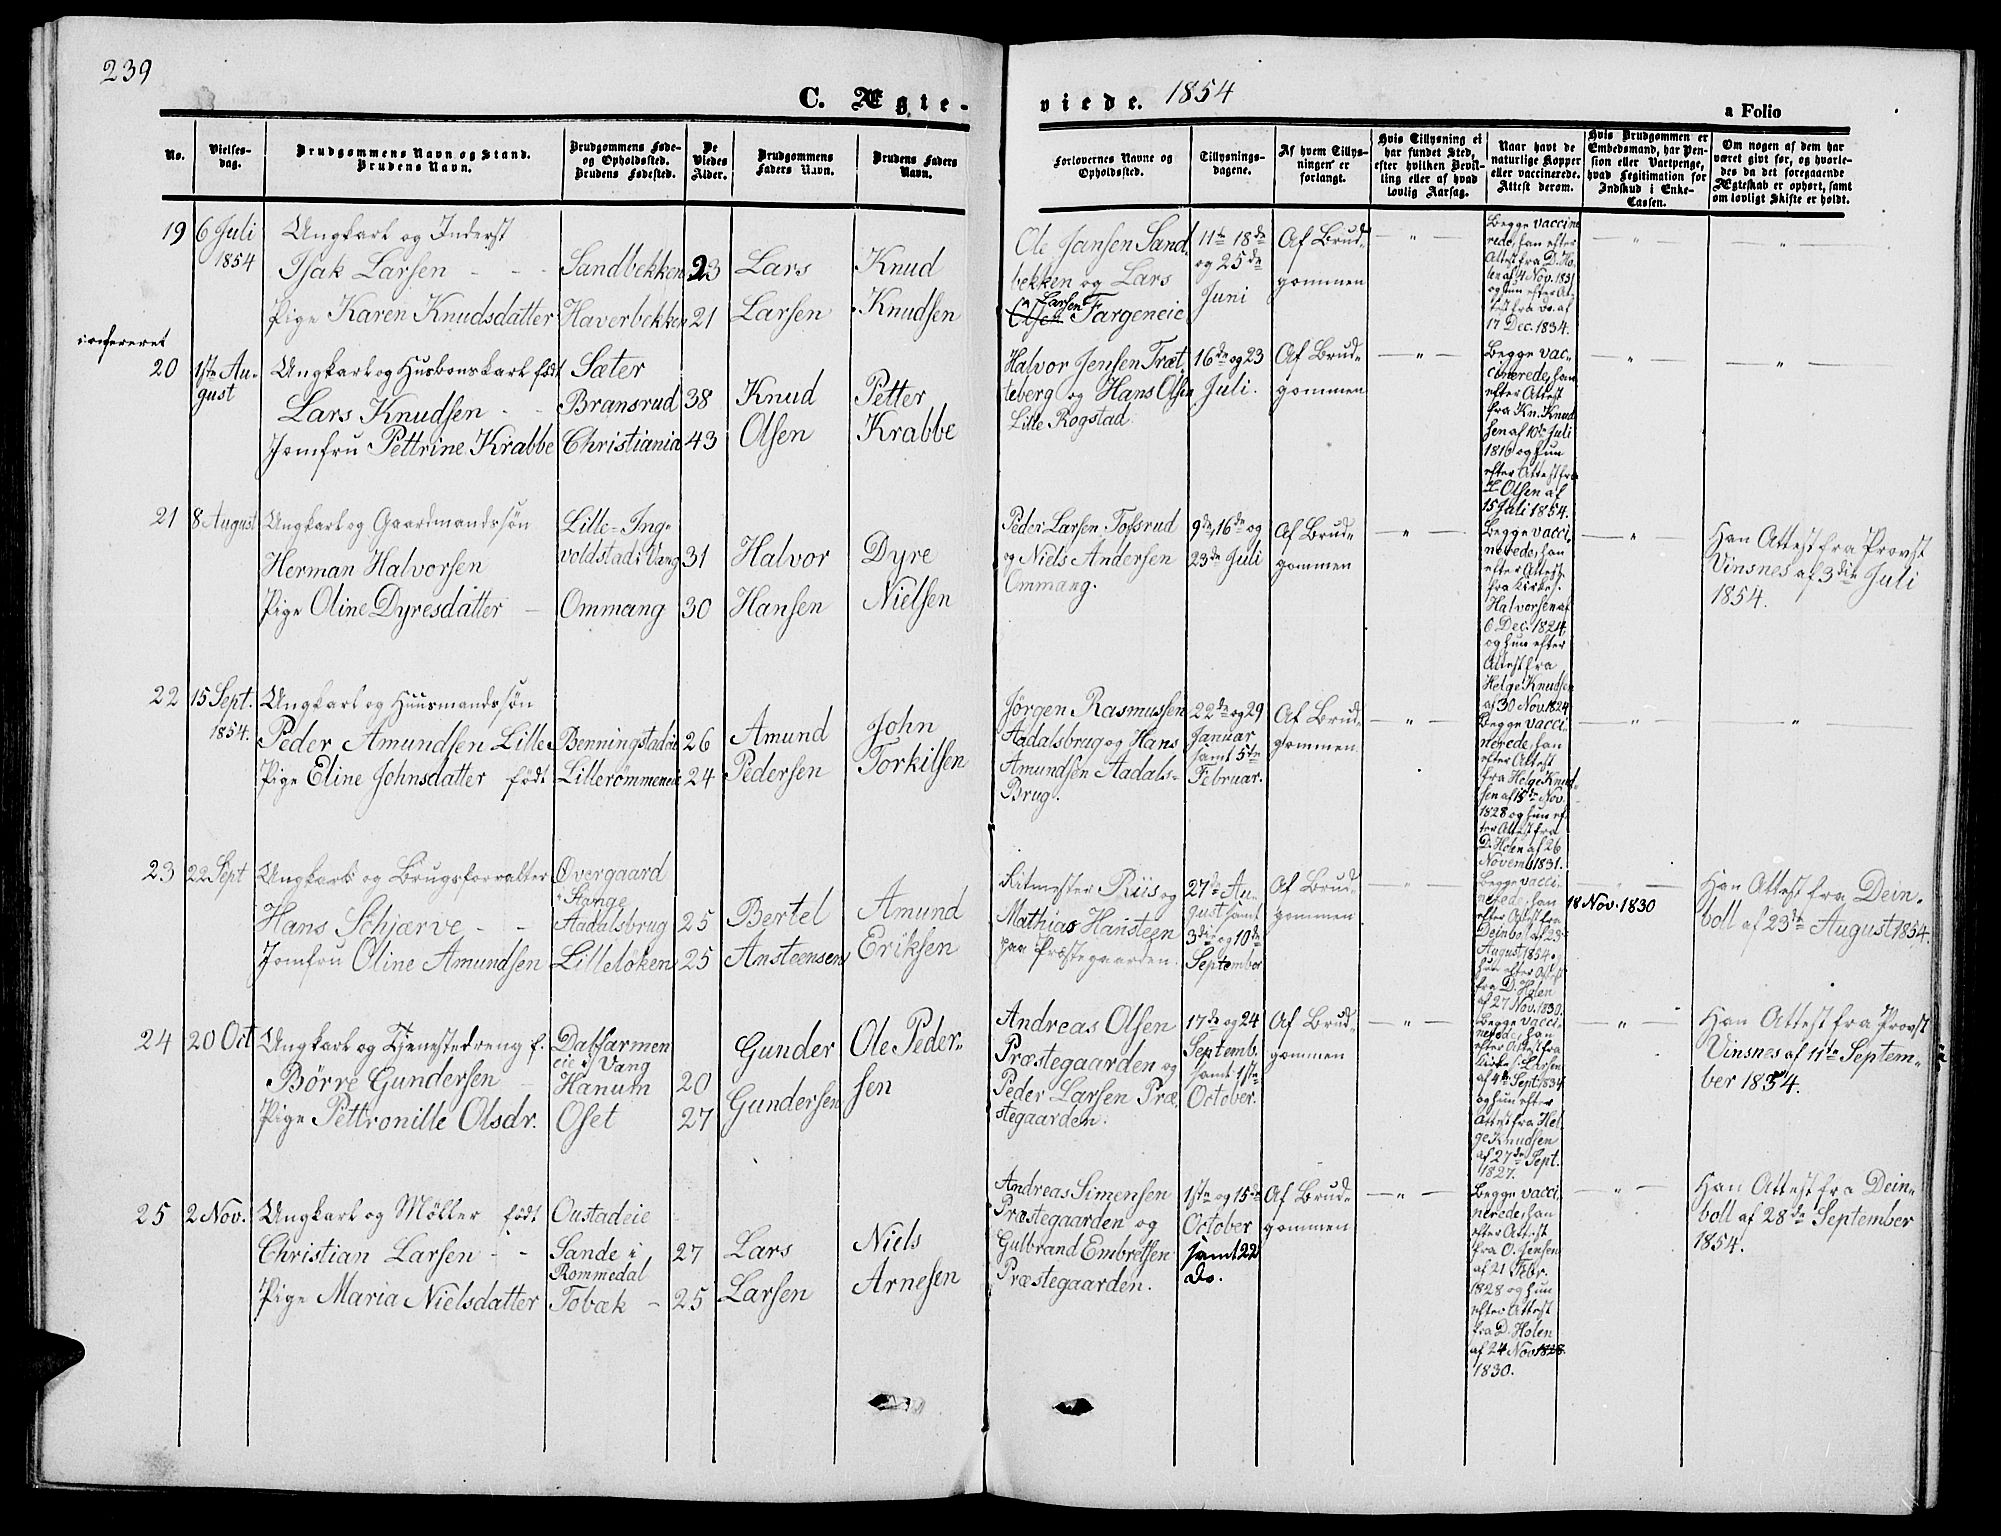 239
C. Ægte-
viede. 1854
a Folio
No.
Vielses-
dag.
Brudgommens Navn og Stand.
Brudens Navn.
Brudgommens Føde-
og Opholdssted.
Brudens Fødested.
De
Viedes
Alder.
Brudgommens
Faders Navn.
Brudens Faders
Navn.
Forlovernes Navne og
Opholdssted.
Tillysnings-
dagene.
Af hvem Tillys-
ningen er
forlangt.
Hvis Tillysning ei
har fundet Sted,
efter hvilken Bevil-
ling eller af hvad
lovlig Aarsag.
Naar havt de
naturlige Kopper
eller vaccinerede.
Attest derom.
Hvis Brudgommen er
Embedsmand, har Pen-
sion eller Vartpenge,
hvad Legitimation for
Indskud i Enke-
Cassen.
Om nogen af dem har
været givt før, og hvorle-
des da det foregaaende
Ægteskab er ophørt, samt
om lovligt Skifte er holdt.
19
6 Juli
1854
Ungkarl og Inderst
Isak Larsen - -
Pige Karen Knudsdatter
Sandbekken
Haverbekken
23
21
Lars
Larsen
Knud
Knudsen
Ole Jansen Sand-
bekken og Lars
Larsen
Olsen Fargeneie
11te 18de
og 25de
Juni
Af Brud-
gommen
Begge vaccine
rede, han efter
Attest fra D. Ho-
len af 4 Nov. 1831
og hun efter At-
test fra do. af
17 Dec. 1834.
20
1ste Au-
gust
Ungkarl og Husbonskarl født
Lars Knudsen - -
Jomfru Pettrine Krabbe
Sæter
Bransrud
Christiania
38
43
Knud
Olsen
Petter
Krabbe
Halvor Jensen Træt
teberg og Hans Olsen
Lille Rogstad
16de og 23
Juli.
Af Brud-
gommen
Begge vac-
cinerede, han
efter Attest
fra Kn. Knud
sen af 10de Juli
1816 og hun
efter Attest fra
L Olsen af
15 Juli 1854.
21
8 August
Ungkarl og Gaardmandssøn
Herman Halvorsen
Pige Oline Dyresdatter -
Lille-Ing-
voldstad i Vang
Ommang
31
30
Halvor
Hansen
Dyre
Nielsen
Peder Larsen Tofsrud
og Niels Andersen
Ommang.
9de, 16de og
23de Juli
Af Brud-
gommen
Begge vacci-
nerede, han
efter Attest
fra Kirkes.
Halvorsen af
6 Dec. 1824,
og hun efter
Attest fra
Helge Knudsen
af 30 Nov. 1824
Han Attest fra Provst
Vinsnes af 3die Juli
1854.
22
15 Sept.
1854.
Ungkarl og Huusmandssøn
Peder Amundsen Lille
Pige Eline Johnsdatter født
Benningstadeie
Lillerömmeneie
26
24
Amund
Pedersen
John
Torkilsen
Jørgen Rasmussen
Aadalsbrug og Hans
Amundsen Aadals-
Brug.
22de og 29
Januar
samt 5te
Februar.
Af Brud-
gommen
Begge vacci-
nerede, han
efter Attest
fra Helge Knud-
sen af 15de Nov.
1828 og hun ef-
ter Attest fra
D. Holen af 26
Novemb 1831.
23
22 Sept
Ungkarl og Brugsforvalter
Hans Schjærve - -
Jomfru Oline Amundsen
Overgaard
i Stange
Aadalsbrug
Lilleløken
25
25
Bertel
Ansteensen
Amund
Eriksen
Ritmester Riis og
Mathias Hansteen
paa Præstegaarden.
27de Au-
gust samt
3die og 10de
September
Af Brud-
gommen
Begge vacci-
nerede, han
efter Attest fra
Deinbol af 23
August 1854.
hun efter Attest
fra D. Holen
af 27 Nov. 1830.
18 Nov. 1830
Han Attest fra Dein-
boll af 23de August 1854.
24
20 Oct
Ungkarl og Tjenestedreng f.
Børre Gundersen -
Pige Pettronille Olsdr.
Dalfarmen
eie i Vang
Hanum
Oset
20
27
Gunder
Gundersen
Ole Peder-
sen
Andreas Olsen
Præstegaarden og
Peder Larsen Præ
stegaarden.
17de og 24
Septemb.
samt 1ste
October.
Af Brud-
gommen
Begge vacci-
nerede, han
efter Attest fra
Kirkes. Larsen
af 4de Sept. 1834
og hun efter
Attest fra Hel-
ge Knudsen
af 27de Sept.
1827.
Han Attest fra Provst
Vinsnes af 11te Septem-
ber 1854.
25
2 Nov.
Ungkarl og Møller født
Christian Larsen - -
Pige Maria Nielsdatter
Oustadeie
Sande i
Rommedal
Tobæk -
27
25
Lars
Larsen
Niels
Arnesen
Andreas Simensen
Præstegaarden og
Gulbrand Embretsen
Præstegaarden.
1ste og 15de
October
samt 22
do.
Af Brud-
gommen
Begge vacci-
nerede, han
efter Attest
fra O. Jensen
af 21 Febr.
1828 og hun
efter Attest
fra D. Holen
af 24 Nov 1828
1830.
Han Attest fra Dein-
boll af 28de September
1854.